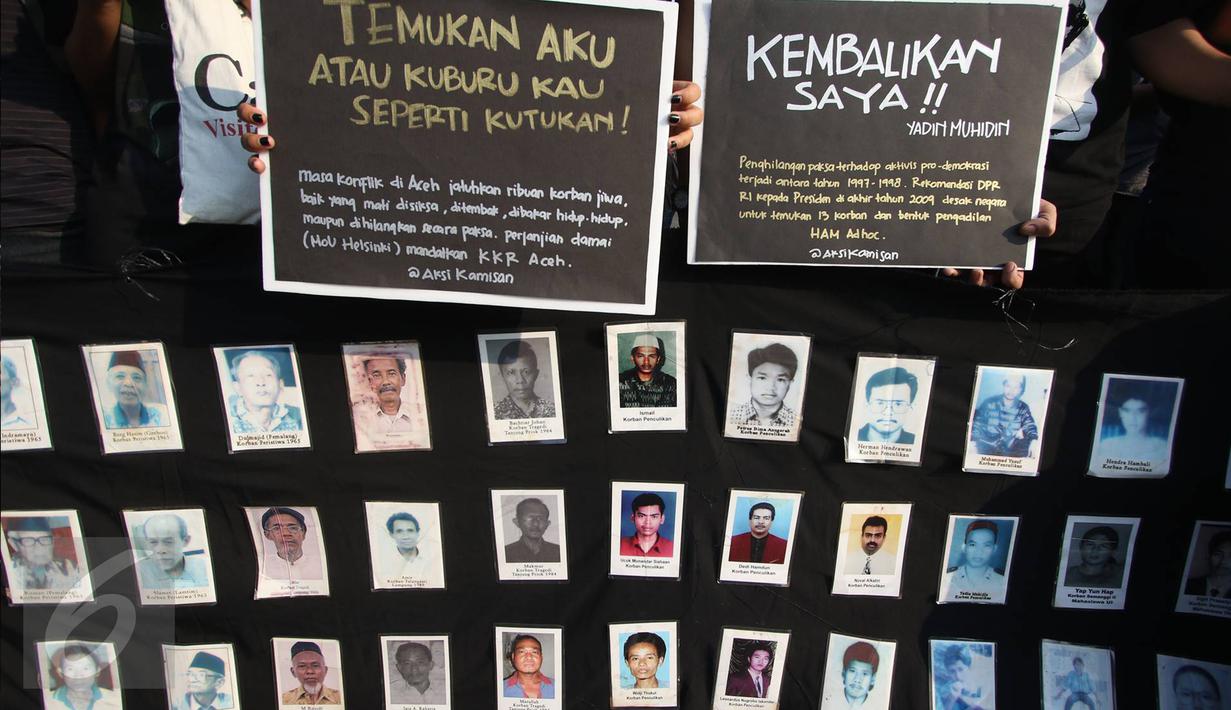 TEMUKAN AKU
ATAU KUBURU KAU
SEPERTI KUTUKAN!
masa konflik di Aceh jatuhkan ribuan korban jiwa,
baik yang mati disiksa, ditembak, dibakar hidup-hidup,
maupun dihilangkan secara paksa. perjanjian damai
(MoU Helsinki) mandatkan KKR Aceh.
@Aksi Kamisan
KEMBALIKAN
SAYA!!
YADIN MUHIDIN
Penghilangan paksa terhadap aktivis pro-demokrasi
terjadi antara tahun 1997-1998. Rekomendasi DPR
RI kepada Presiden di akhir tahun 2009 desak negara
untuk temukan 13 korban dan bentuk pengadilan
HAM Adhoc.
@AksiKamisan
C
Visit
Indramayu)
Peristiwa 1965
Korban Peristiwa 1965
Dalmajid (Pemalang)
Korban Peristiwa 1965
Bachtiar Johan
Korban Tragedi
Tanjung Priok 1984
Ismail
Korban Penculikan
Petrus Bima Anugerah
Korban Penculikan
Herman Hendrawan
Korban Penculikan
Muhammad Yusuf
Korban Penculikan
Hendra Hambali
Korban Penculikan
(Pemalang)
Korban Peristiwa 1965
Slamet
Korban Peristiwa 1965
Korban Tragedi
Amir
Korban Talangsari
Lampung 1989
Makmur
Korban Tragedi
Tanjung Priok 1984
Ucok Munandar Siahaan
Korban Penculikan
Dedi Hamdun
Korban Penculikan
Noval Alkatiri
Korban Penculikan
Yadin Muhidin
Korban Penculikan
Yap Yun Hap
Korban Semanggi II
Mahasiswa UI
Korban Semanggi
Mahasiswa
Korban Tragedi
Tanjung Priok 1984
Wiji Thukul
Korban Penculikan
Leonardus Nugroho Iskandar
Korban Penculikan